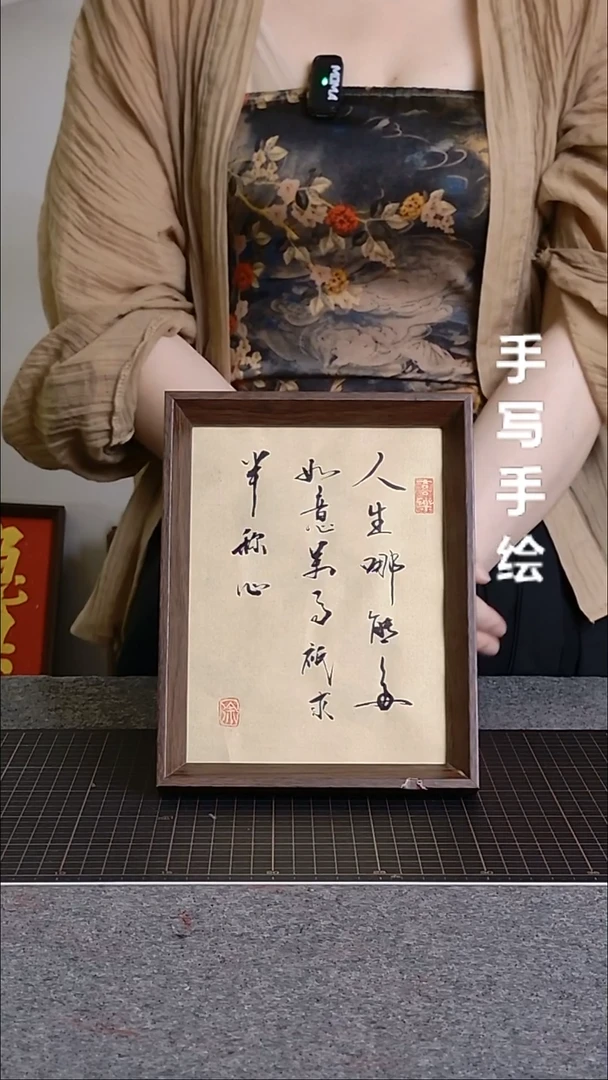 人生哪能多
如意萬事祇求
半称心
手写手绘
MOMA